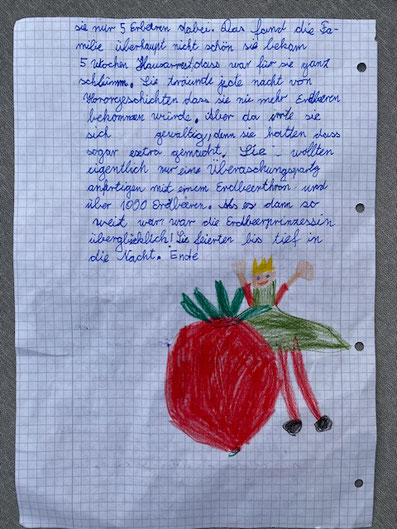 sie nur 5 Erberen dabei. Das fand die Fa-
milie überhaupt nicht schön sie bekam
5 Wochen Hausarrest dass war für sie ganz
schlimm. Sie träumte jede nacht von
Hororgeschichten dass sie nie mehr Erdbeeren
bekommen würde. Aber da irrte sie
sich gewaltig, denn sie hatten dass
sogar extra gemacht, Sie wollten
eigentlich nur eine Überaschungsparty
anfertigen mit einem Erdbeerthron und
über 1000 Erdbeeren. Als es dann so
weit war war die Erdbeerprinzessin
überglücklich! Sie feierten bis tief in
die Nacht. Ende